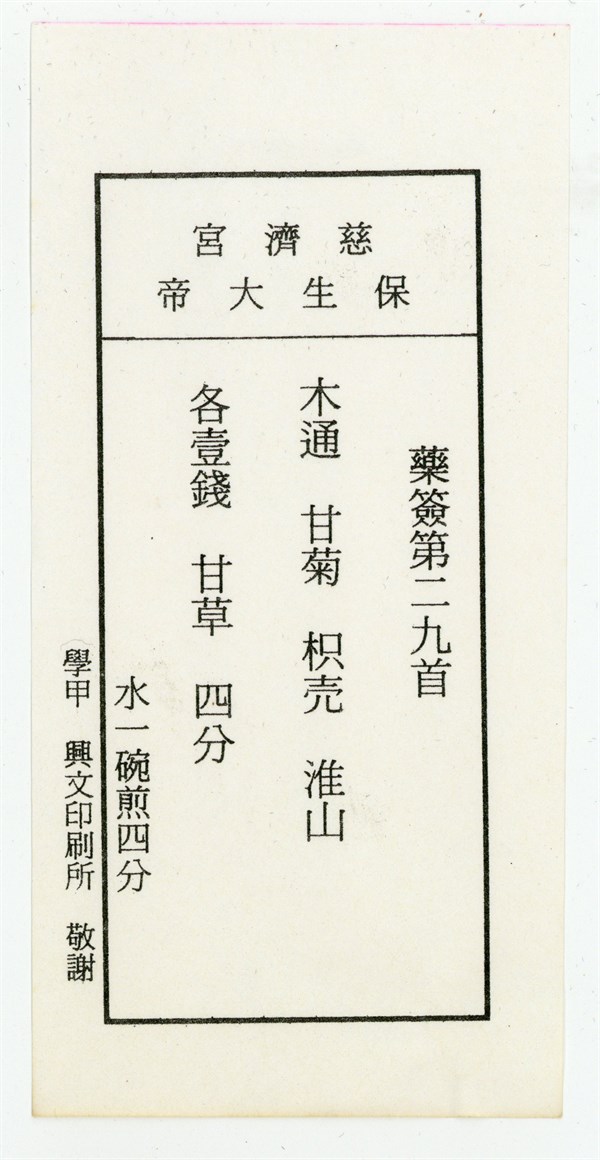 慈濟宮
保生大帝
藥簽第二九首
木通 甘菊 枳壳 淮山
各壹錢 甘草 四分
水一碗煎四分
學甲 興文印刷所 敬謝